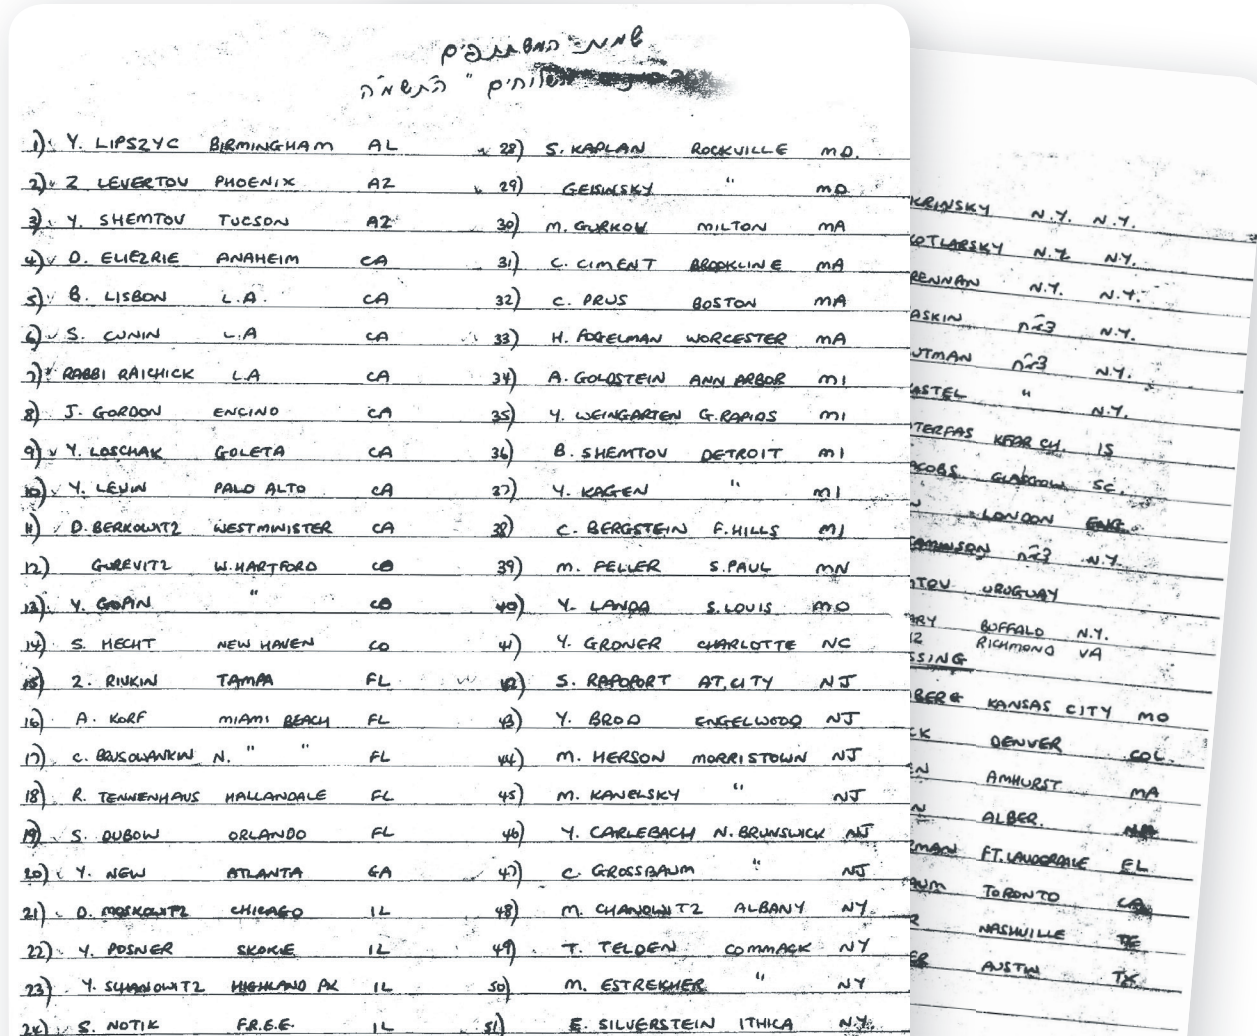 שמות המשתתפים
שלוחים" ה'תשמ"ה
1) Y. LIPSZYC BIRMINGHAM AL
2) Z LEVERTOV PHOENIX AZ
3) Y. SHEMTOV TUCSON AZ
4) D. ELIEZRIE ANAHEIM CA
5) B. LISBON L.A. CA
6) S. CUNIN L.A CA
7) RABBI RAICHICK L.A CA
8) J. GORDON ENCINO CA
9) Y. LOSCHAK GOLETA CA
10) Y. LEVIN PALO ALTO CA
11) D. BERKOWITZ WESTMINISTER CA
12) GUREVITZ W. HARTFORD CO
13) Y. GOPIN " CO
14) S. HECHT NEW HAVEN CO
15) Z. RIVKIN TAMPA FL
16) A. KORF MIAMI BEACH FL
17) C. BRUSOWANKIN N. " " FL
18) R. TENNENHAUS HALLANDALE FL
19) S. DUBOW ORLANDO FL
20) Y. NEW ATLANTA GA
21) D. MOSKOWITZ CHICAGO IL
22) Y. POSNER SKOKIE IL
23) Y. SCHANOWITZ HIGHLAND PK IL
24) S. NOTIK F.R.E.E. IL
28) S. KAPLAN ROCKVILLE MD.
29) GEISINSKY " MD
30) M. GURKOW MILTON MA
31) C. CIMENT BROOKLINE MA
32) C. PRUS BOSTON MA
33) H. FOGELMAN WORCESTER MA
34) A. GOLDSTEIN ANN ARBOR MI
35) Y. WEINGARTEN G. RAPIDS MI
36) B. SHEMTOV DETROIT MI
37) Y. KAGEN " MI
38) C. BERGSTEIN F. HILLS MI
39) M. FELLER S. PAUL MN
40) Y. LANDA S. LOUIS MO
41) Y. GRONER CHARLOTTE NC
42) S. RAPOPORT AT. CITY NJ
43) Y. BROD ENGELWOOD NJ
44) M. HERSON MORRISTOWN NJ
45) M. KANELSKY " NJ
46) Y. CARLEBACH N. BRUNSWICK NJ
47) C. GROSSBAUM " NJ
48) M. CHANOWITZ ALBANY NY
49) T. TELDEN COMMACK NY
50) M. ESTREICHER " NY
51) E. SILVERSTEIN ITHICA N.Y.
KRINSKY N.Y. N.Y.
KOTLARSKY N.Y. N.Y.
RENNAN N.Y. N.Y.
ASKIN N.Y.
UTMAN N.Y.
KASTEL " N.Y.
TERFAS KFAR CH. IS
ACOBS GLASGOW SC.
LONDON ENG.
N.Y.
TOV URUGUAY
ARY BUFFALO N.Y.
RICHMOND VA
SSING
BERG KANSAS CITY MO
CK DENVER COL.
EN AMHURST MA
N ALBER.
RMAN FT. LAUDERDALE FL
AUM TORONTO CA
R NASHVILLE TE
ER AUSTIN TX